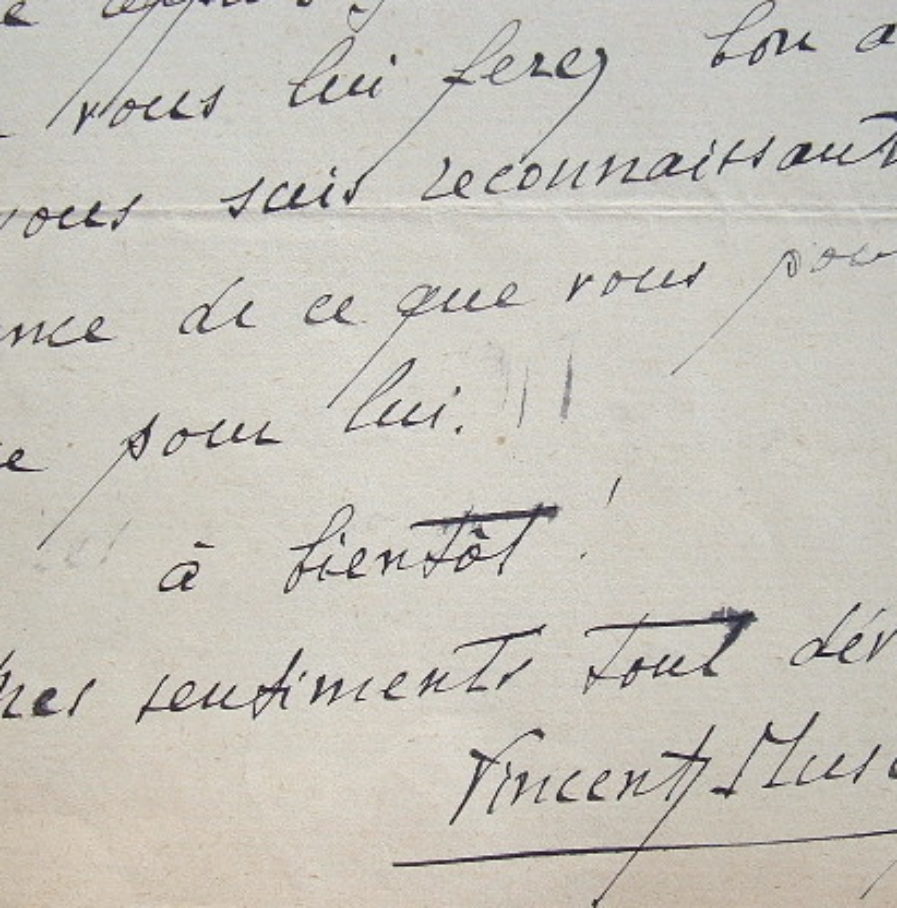 vous lui ferez bon a
vous suis reconnaissant
nce de ce que vous pou
e pour lui.
à bientôt !
mes sentiments tout dév
Vincent Mus